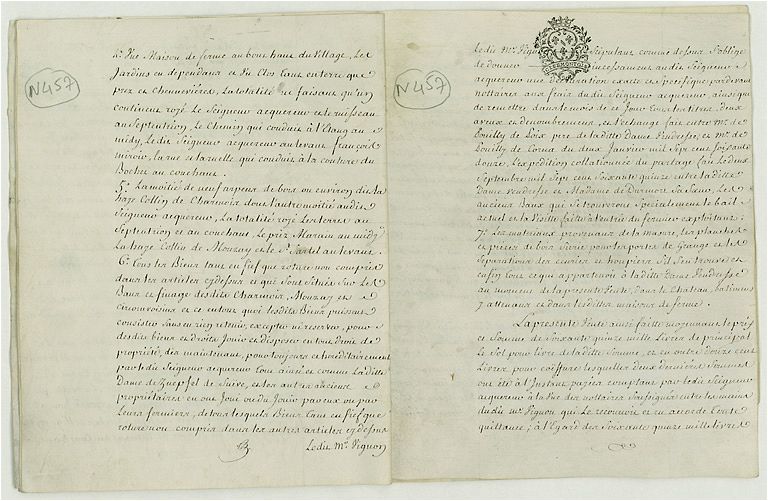 N 457
Maison de ferme au bout haut du Village, Les
Jardins en dependans et un Clos tant en terre que
prez et Chenevieres, La totalité ne faisant qu'un
continent royé Le Seigneur acquereur et le ruisseau
au Septentrion, Le Chemin qui conduit à l'Etang au
midy, Ledit Seigneur acquereur au levant françois
miroir, la rue et la ruelle qui conduit à la couture du
Rocher au couchant.
5.° La moitié de neuf arpens de bois ou environ dits la
haze Collin de Charmois dont l'autre moitié audit
Seigneur acquereur, La totalité royé Les terres au
Septentrion et au couchant, Le prez Marain au midy
La haze Collin de Mouzay et le S.r Sartel au levant.
6.° Tous les Biens tant en fief que roture non compris
dans les articles cydessus et qui sont situés sur Les
Bans et finage desdits Charmois, Mouzay et
circonvoisins et en ce en tout quoi lesdits Biens puissent
consister sans en rien retenir, excepter ni reserver, pour
desdits biens et droits Jouir et disposer en tout droit de
propriété, dès maintenant, pour toujours et hereditairement
par ledit Seigneur acquereur tout ainsi et comme Ladite
Dame de Zuepfel de Suive, et ses autres anciens
proprietaires en ont Joui ou du Jouir par eux ou par
Leurs fermiers, de tous lesquels Biens tant en fief que
roture non compris dans les autres articles cydessus
Ledit M.r Pignon
N 457
Ledit M.r Pignon Stipulant comme dessus s'oblige
de donner incessamment audit Seigneur
acquereur une declaration exacte et specifique pardevant
nottaires aux frais dudit Seigneur acquereur, ainsi que
de remettre dans le mois de ce Jour tous les titres, deux
aveux et denombrement, et l'echange fait entre M.r de
Pouilly de Loix pere de laditte Dame Vendresse, et M.r de
Pouilly de Cornu du deux Janvier mil Sept cent Soixante
douze, L'expedition collationnée du partage fait Le deux
Septembre mil Sept cent Soixante quinze entre laditte
Dame Vendresse et Madame de Durmort Sa Sœur, Les
anciens Baux qui se trouveront Specialement le bail
actuel et la Visitte faitte à l'entrée du fermier exploitant;
7.° Les materiaux provenans de la masure, les planches
et pieces de bois Sciée pour les portes de Grange et les
reparations des ecuries et houpiers s'il s'en trouve et
enfin tout ce qui appartenoit à laditte Dame Vendresse
au moment de la presente Vente, dans le Chateau, batimens
y attenans et dans lesdittes maisons de ferme.
La presente Vente ainsi faitte moyennant le prix
et Somme de Soixante quinze mille Livres de principal
Le Sol pour livre de laditte Somme, et en outre douze cent
Livres pour coëffure lesquelles deux dernieres Sommes
ont été à l'Instant payées comptant par ledit Seigneur
acquereur à la Vue des nottaires Soussignés entre les mains
dudit M.r Pignon qui Le reconnoit et en accorde Toute
quittance; à l'Egard des Soixante quinze mille Livres